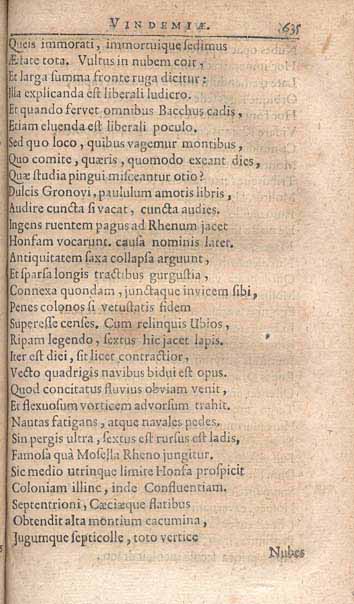 VINDEMIÆ. 635
Queis immorati, immortuique sedimus
Æstate tota. Vultus in nubem coit,
Et larga summa fronte ruga dicitur:
Illa explicanda est liberali ludicro.
Et quando fervet omnibus Bacchus cadis,
Etiam eluenda est liberali poculo.
Sed quo loco, quibus vagemur montibus,
Quo comite, quæris, quomodo exeant dies,
Quæ studia pingui misceantur otio?
Dulcis Gronovi, paululum amotis libris,
Audire cuncta si vacat, cuncta audies.
Ingens ruentem pagus ad Rhenum jacet
Honfam vocarunt. causa nominis latet.
Antiquitatem saxa collapsa arguunt,
Et sparsa longis tractibus gurgustia,
Connexa quondam, junctaque invicem sibi,
Penes colonos si vetustatis fidem
Superesse censes. Cum relinquis Ubios,
Ripam legendo, sextus hic jacet lapis.
Iter est diei, sit licet contractior,
Vecto quadrigis navibus bidui est opus.
Quod concitatus fluvius obviam venit,
Et flexuosum vorticem adversum trahit.
Nautas fatigans, atque navales pedes.
Sin pergis ultra, sextus est rursus est ladis,
Famosa quà Mosella Rheno jungitur.
Sic medio utrinque limite Honfa prospicit
Coloniam illinc, inde Confluentiam.
Septentrioni, Cæciæque flatibus
Obtendit alta montium cacumina,
Jugumque septicolle, toto vertice
Nubes